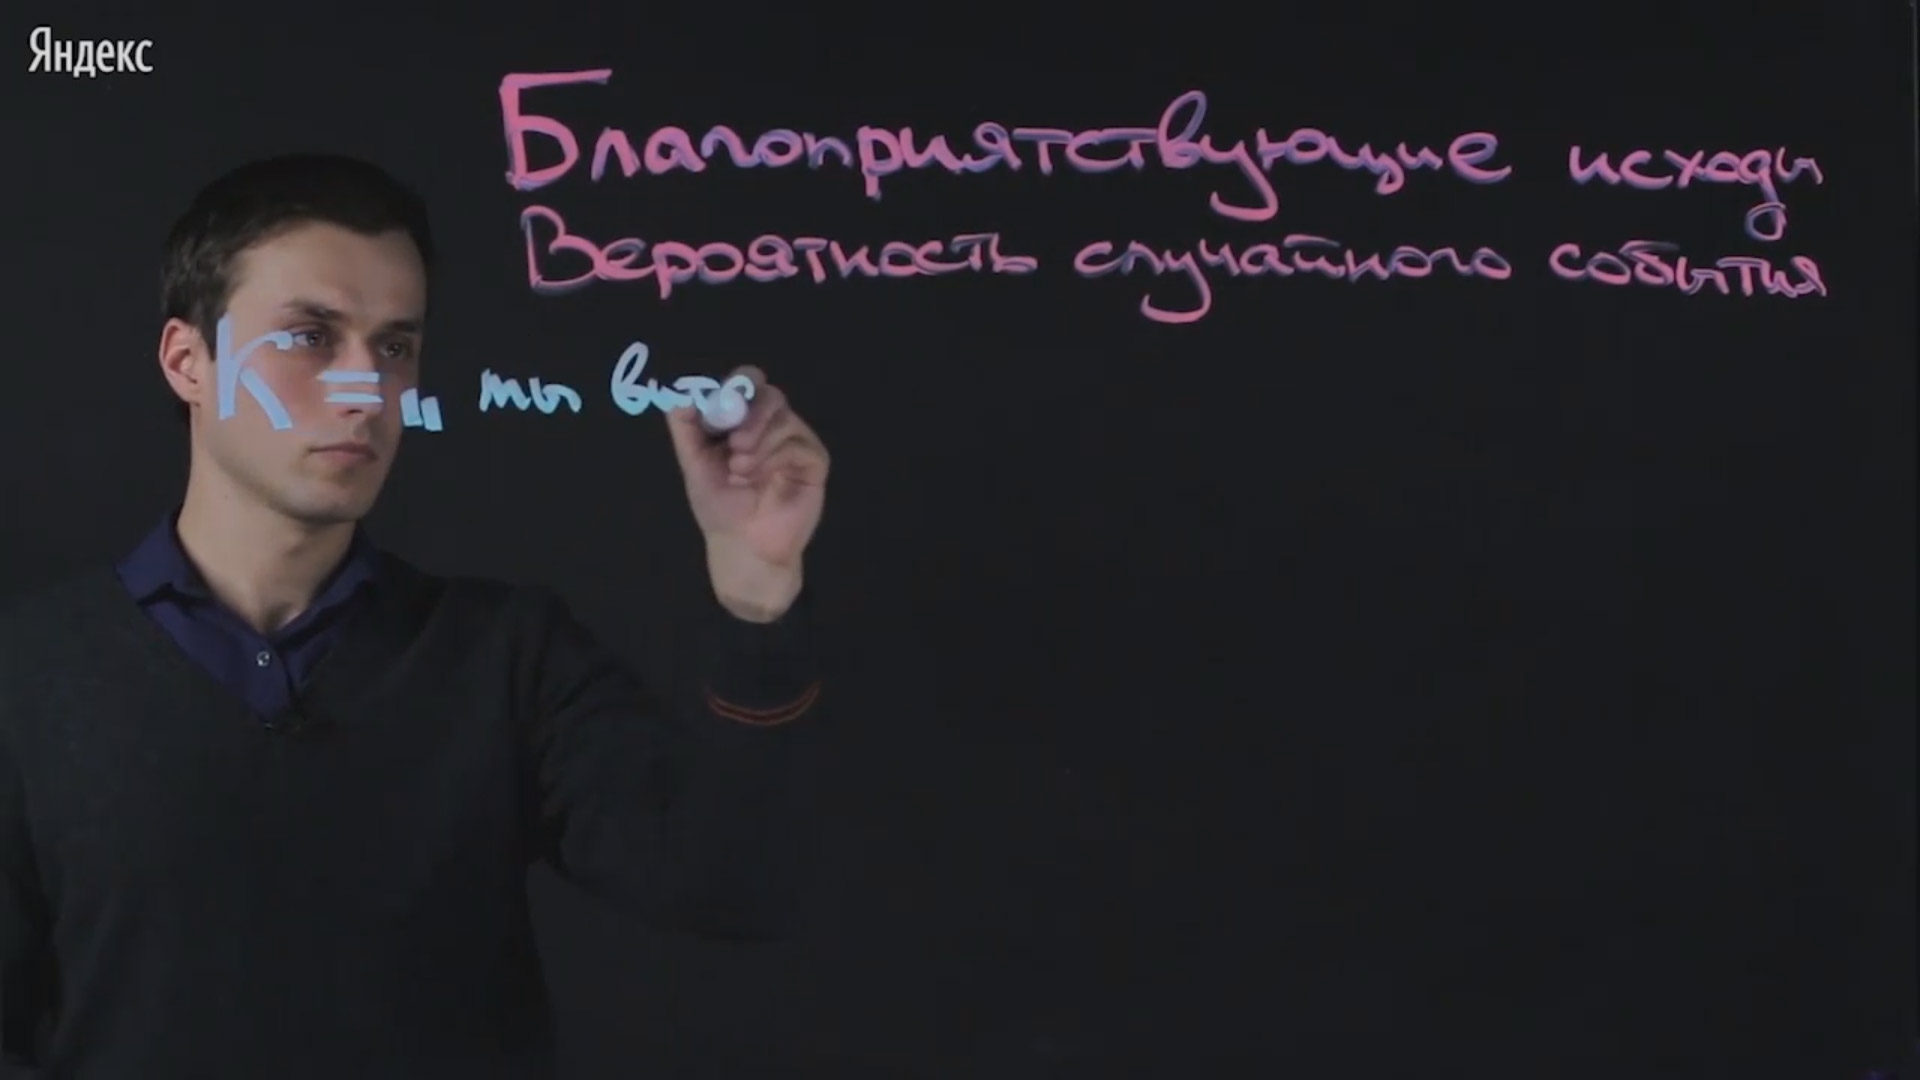 Яндекс
Благоприятствующие исходы
Вероятность случайного события
K = „ ты выт